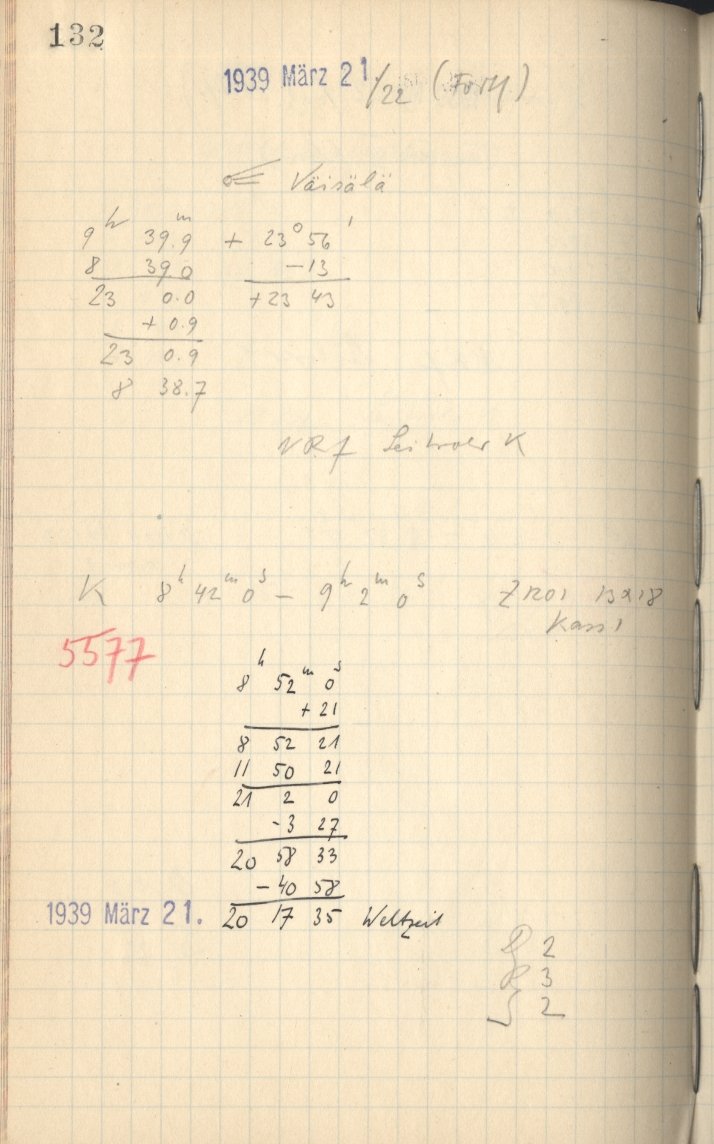 132
1939 März 21/22
Väisälä
9ʰ 39.9ᵐ + 23° 56'
8 39.0 -13
23 0.0 +23 43
+ 0.9
23 0.9
8 38.7
K 8ʰ 42ᵐ 0ˢ - 9ʰ 2ᵐ 0ˢ
5577
8ʰ 52ᵐ 0ˢ
+ 21
8 52 21
11 50 21
21 2 0
-3 27
20 58 33
-40 58
1939 März 21. 20 17 35 Weltzeit
2
3
2